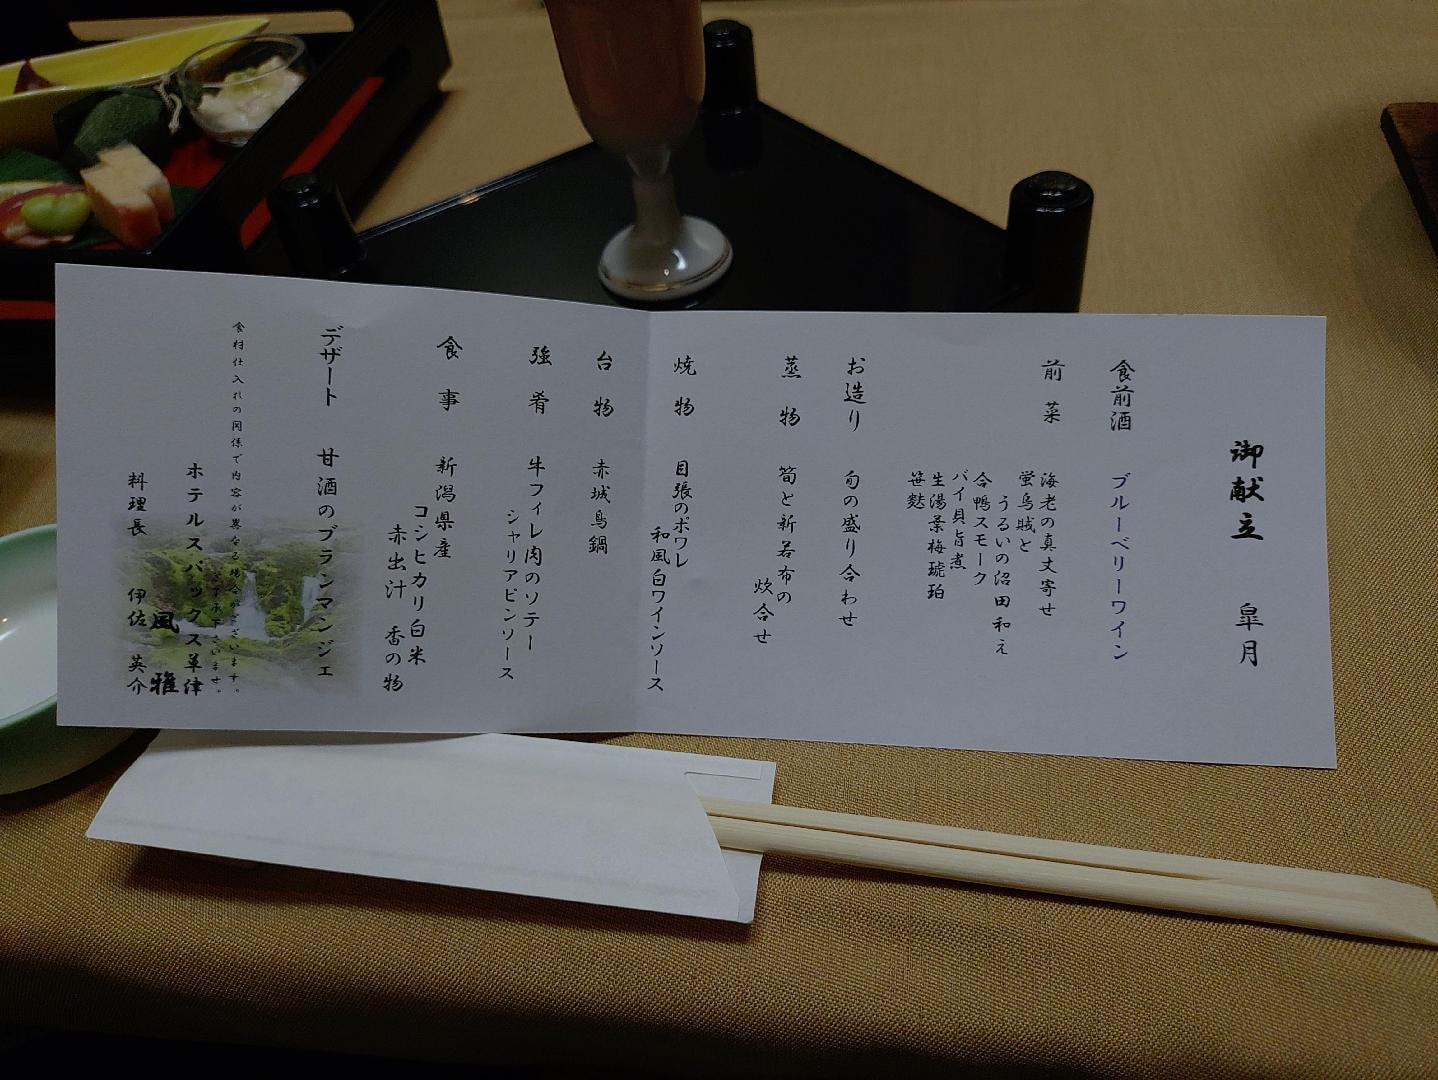 御献立 皐月
食前酒 ブルーベリーワイン
前菜 海老の真丈寄せ
蛍烏賊と
うるいの沼田和え
合鴨スモーク
バイ貝旨煮
生湯葉梅琥珀
笹麩
お造り 旬の盛り合わせ
蒸物 筍と新若布の
炊合せ
焼物 目張のポワレ
和風白ワインソース
台物 赤城鳥鍋
強肴 牛フィレ肉のソテー
シャリアピンソース
食事 新潟県産
コシヒカリ白米
赤出汁 香の物
デザート 甘酒のブランマンジェ
食材仕入れの関係で内容が異なる場合がございます。
ご了承下さいませ。
ホテルスパックス草津
風雅
料理長 伊佐 英介